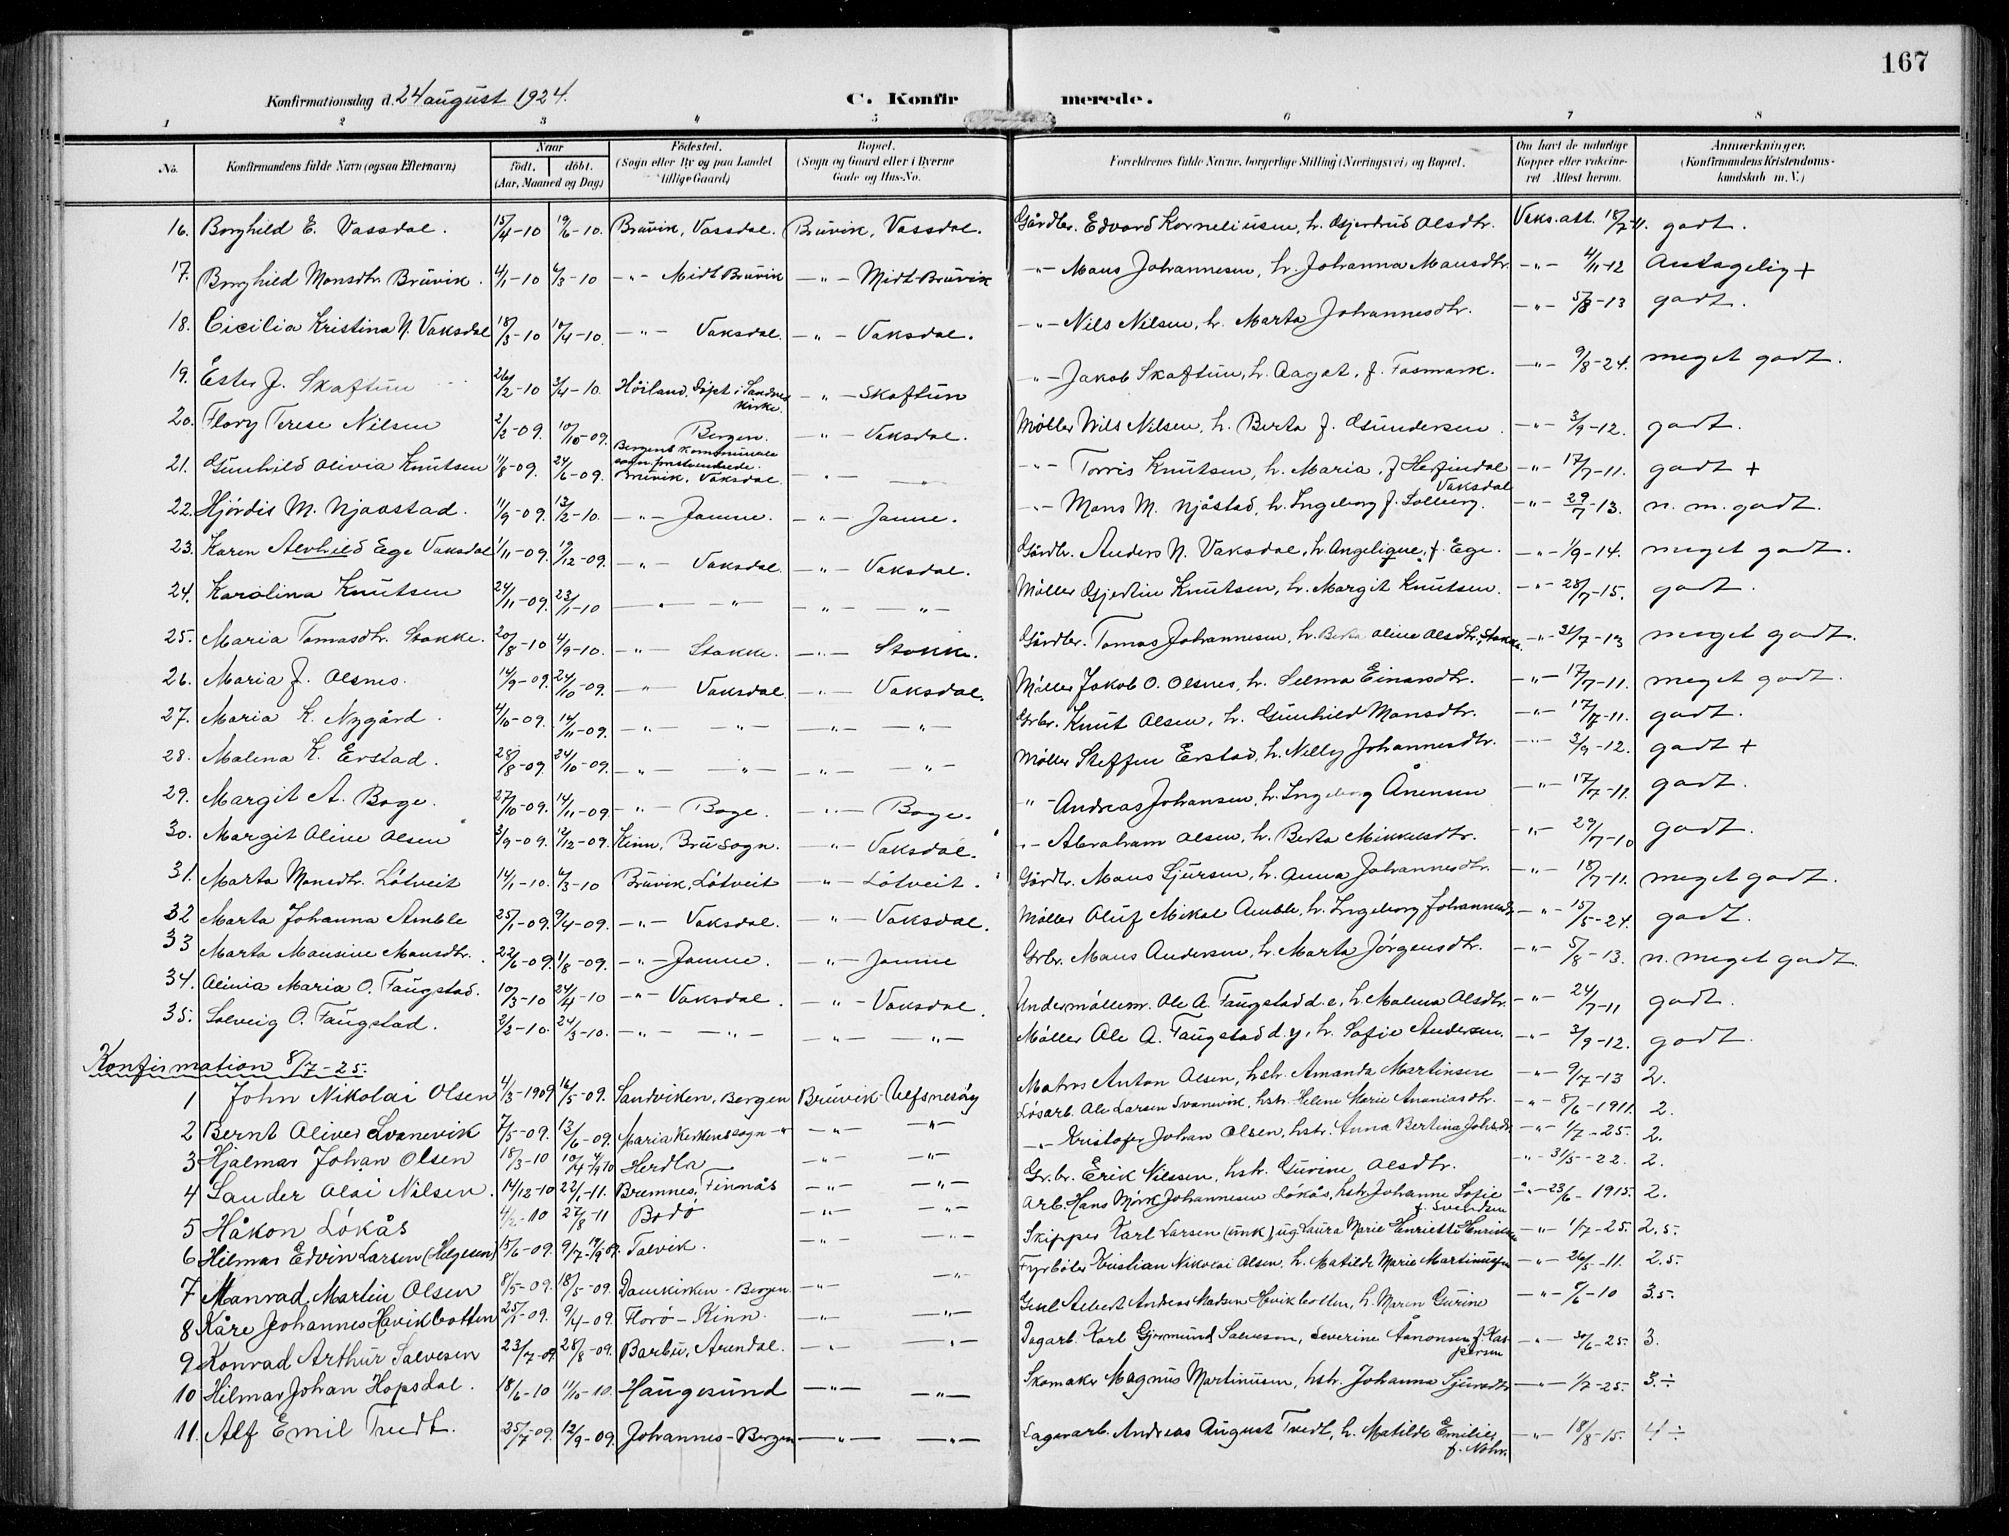 167
Konfirmationsdag d. 24 august 1924.
C. Konfir merede.
1 2 3 4 5 6 7 8
No. Konfirmandens fulde Navn (ogsaa Efternavn) Naar født. døbt. (Aar, Maaned og Dag) Fødested. (Sogn eller By og paa Landet tillige Gaard) Bopæl. (Sogn og Gaard eller i Byerne Gade og Hus-No. Forældrenes fulde Navne, borgerlige Stilling (Næringsvei) og Bopæl. Om havt de naturlige Kopper eller vakcineret Attest herom. Anmærkninger. (Konfirmandens Kristendomskundskab m. V.)
16. Borghild E. Vassdal. 15/4-10 19/6-10. Brüvik, Vassdal. Brüvik, Vassdal. Gårdbr. Edvard Korneliusen, h. Gjertrud Olsdtr. Vaks.att. 18/7-11. godt.
17. Borghild Monsdtr. Brüvik. 4/1-10 6/3-10 -"- Midt Brüvik -"- Midt Brüvik -"- Mons Johannesen, h. Johanna Monsdtr. -"- 4/11-12 Antagelig +
18. Cicilia Kristina N. Vaksdal 18/3-10 10/4-10. -"- Vaksdal. -"- Vaksdal. -"- Nils Nilsen, h. Marta Johannesdtr. -"- 5/8-13 godt.
19. Ester J. Skaftün 26/2-10 3/4-10. Höiland, döpt i Sandnes kirke. -"- Skaftün -"- Jakob Skaftün, h. Aagot, f. Fosmark. -"- 9/8-24. meget godt.
20. Flory Terese Nilsen 2/2-09. 10/10-09. Bergen. -"- Vaksdal. Møller Nils Nilsen, h. Berta f. Gündersen. -"- 3/9-12. godt.
21. Günhild Olivia Knütsen 11/8-09. 24/6-09. Bergens kommunale Brüvik, Vaksdal. -"- -"- -"- Torris Knütsen, h. Maria, f Herfindal Vaksdal -"- 17/7-11. godt +
22. Hjørdis M. Njaastad. 11/9-09. 13/2-10. -"- Jamne. -"- Jamne. -"- Mons M. Njåstad, h. Ingeborg f. Solberg. -"- 29/7-13. n. m. godt.
23. Karen Alvhild Ege Vaksdal 1/11-09. 19/12-09. -"- Vaksdal. -"- Vaksdal. Gårdbr. Anders N. Vaksdal, h. Angelique, f. Ege. -"- 1/9-14. meget godt.
24. Karolina Knütsen 24/11-09. 23/1-10 -"- -"- -"- -"- Møller Gjertin Knütsen, h. Margit Knütsen. -"- 28/7-15. godt.
25. Maria Tomasdtr. Stokke. 20/8-10 4/9-10. -"- Stokke. -"- Stokke. Gårdbr. Tomas Johannesen, h. Berta Oline Olsdtr. Stokke. -"- 31/7-13 meget godt.
26. Maria J. Olsnes. 14/9-09. 24/10-09. -"- Vaksdal -"- Vaksdal. Møller Jakob O. Olsnes, h. Selma Einarsdtr. -"- 17/7-11. meget godt.
27. Maria K. Nygård. 4/10-09. 14/11-09. -"- -"- -"- -"- Grbr. Knut Olsen, h. Günhild Monsdtr. -"- 17/7-11. godt.
28. Malena K. Erstad. 28/8-09. 24/10-09. -"- -"- -"- -"- Møller Steffen Erstad, h. Nelly Johannesdtr. -"- 3/9-12. godt +
29. Margit A. Boge. 27/10-09. 14/11-09. -"- Boge. -"- Boge. -"- Andreas Johansen, h. Ingeborg Ånensen -"- 17/7-11. godt.
30. Margit Oline Olsen 3/9-09. 12/12-09. Kinn, Brü sogn. -"- Vaksdal. -"- Abraham Olsen, h. Berta Mikkelsdtr. -"- 29/7-10 godt.
31. Marta Monsdtr. Lötveit 14/1-10. 6/3-10 Brüvik, Lötveit -"- Lötveit. Gårdbr. Mons Sjursen, h. Anna Johannesdtr. -"- 18/7-11. meget godt.
32 Marta Johanna Amble 25/1-09. 9/4-09. -"- Vaksdal. -"- Vaksdal. Møller Oluf Mikal Amble, h. Ingeborg Johannesdtr. -"- 15/5-24. godt.
33 Marta Monsine Monsdtr. 22/6-09. 1/8-09. -"- Jamne. -"- Jamne Grbr. Mons Andersen, h. Marta Jørgensdtr. -"- 5/8-13. n. meget godt.
34. Olivia Maria O. Faugstad. 10/3-10 24/4-10 -"- Vaksdal. -"- Vaksdal. Undermøllem. Ole A. Faügstad d.e, h. Malena Olsdtr. -"- 24/7-11 godt.
35. Solveig O. Faügstad. 3/2-10. 24/3-10. -"- -"- -"- -"- Møller Ole A. Faügstad d.y, h. Sofie Andersen. -"- 3/9-12. godt.
Konfirmation 8/7-25.
1 John Nikolai Olsen 4/3-1909 16/5-09. Sandviken, Bergen Brüvik-Ulfsnesöy Matros Anton Olsen, hstr. Amanda Martinsen -"- 9/7-13 2.
2 Bernt Oliver Svanevik 7/5-09. 13/6-09. Mariakirkens sogn -"- -"- -"- Løsarb. Ole Larsen Svanevik, hstr. Helene Marie Ananiasdtr. -"- 8/6-1911. 2.
3 Hjalmar Johan Olsen 18/3-10 Herdla -"- -"- -"- Kristofer Johan Olsen, hstr. Anna Bertina Johsdtr. -"- 1/7-25. 2.
4 Sander Olai Nilsen. 14/12-10 22/1-11. Bremnes, Finnås -"- -"- Gr.br. Erik Nilssen, hstr. Gurine Olsdtr. -"- 31/5-22. 2.
5 Håkon Lökås 4/2-10 27/8-11 Bodö -"- -"- Arb. Hans Mörk Johannesen Lökås, hstr. Johanne Sofie f. Svendsen -"- 23/6-1915. 2.
6 Hilmar Edvin Larsen (Helgesen) 15/6-09. Talvik. -"- -"- Skipper Karl Larsen (unk), ug. Laura Marie Henriette Henriksen -"- 1/7-25. 2.5.
7 Manrad Martin Olsen 8/5-09. 18/5-09. Domkirken-Bergen. -"- -"- Fyrbøter Kristian Nikolai Olsen, h. Matilde Marie Martinüsen -"- 26/5-11. 2.5.
8 Kåre Johannes Havikbotten 25/1-09. 9/4-09. Florø-Kinn. -"- -"- Albert Andreas Madsen Havikbotten, h. Maren Gurine -"- 5/6-10 3.5.
9 Konrad Arthur Salvesen 23/7-09. 28/8-09. Barbu, Arendal. -"- -"- Dagarb. Karl Gjermund Salveson, Severine Aanonsen f. Kaspersen -"- 30/6-25. 3.
10 Hilmar Johan Hopsdal. 18/6-10 11/10-10. Haugesund -"- -"- Skomaker Magnus Martinusen, hstr. Johanna Sjursdtr. -"- 1/7-25. 3.÷
11. Alf Emil Tvedt. 25/7-09. 12/9-09. Johannes-Bergen -"- -"- Lagerarb. Andreas August Tvedt, h. Matilde Emilie f. Mohr. -"- 18/8-15. 4÷